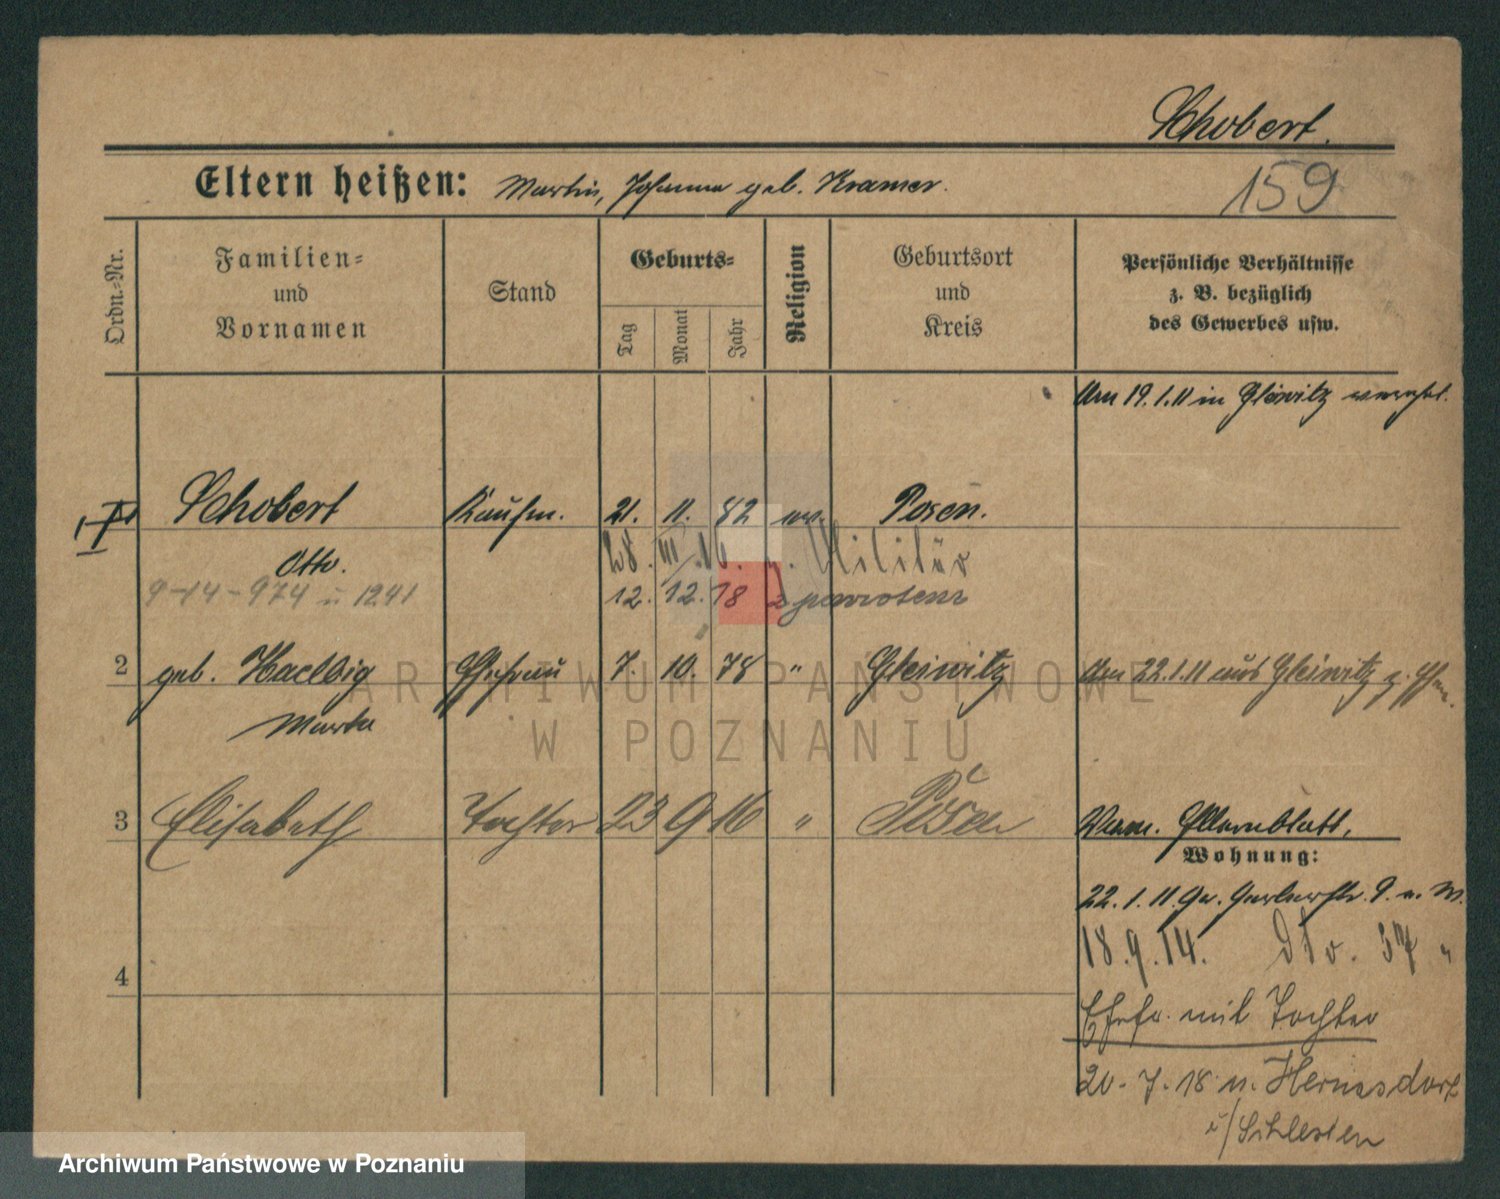 Schobert.
Eltern heißen: Martin, Johanna geb. Kramer.
159
Ordn.-Nr.
Familien-
und
Vornamen
Stand
Geburts-
Tag
Monat
Jahr
Religion
Geburtsort
und
Kreis
Persönliche Verhältnisse
z. B. bezüglich
des Gewerbes usw.
Am 19.1.11 in Gleiwitz verehel.
Schobert Kaufm. 21. 11. 82 ev. Posen.
Otto. 28. III. 16. z. Militär
9-14-974 u 1241 12. 12. 18
2 geb. Haelbig Ehefrau 7. 10. 78 " Gleiwitz Am 22.1.11 aus Gleiwitz
Marta
3 Elisabeth Tochter 23 9 16 " Posen Elternblatt.
Wohnung:
22.1.11 Gr. Gerberstr. 9.
18.9.14. Dto. 37 "
4
Ehefr. mit Tochter
20.7.18 n. Hermsdorf
i/Schlesien
ARCHIWUM PAŃSTWOWE
W POZNANIU
Archiwum Państwowe w Poznaniu